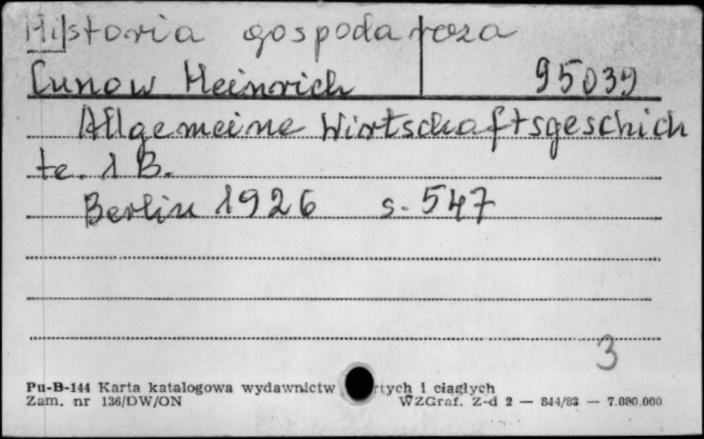 Historia gospodarcza
Cunow Heinrich 95039
Allgemeine Wirtschaftsgeschich
te. 1 B.
Berlin 1926 s. 547
3
Pu-B-144 Karta katalogowa wydawnictw rtych i ciągłych
Zam. nr 136/DW/ON WZGraf. Z-d 2 — 844/83 — 7.880.000